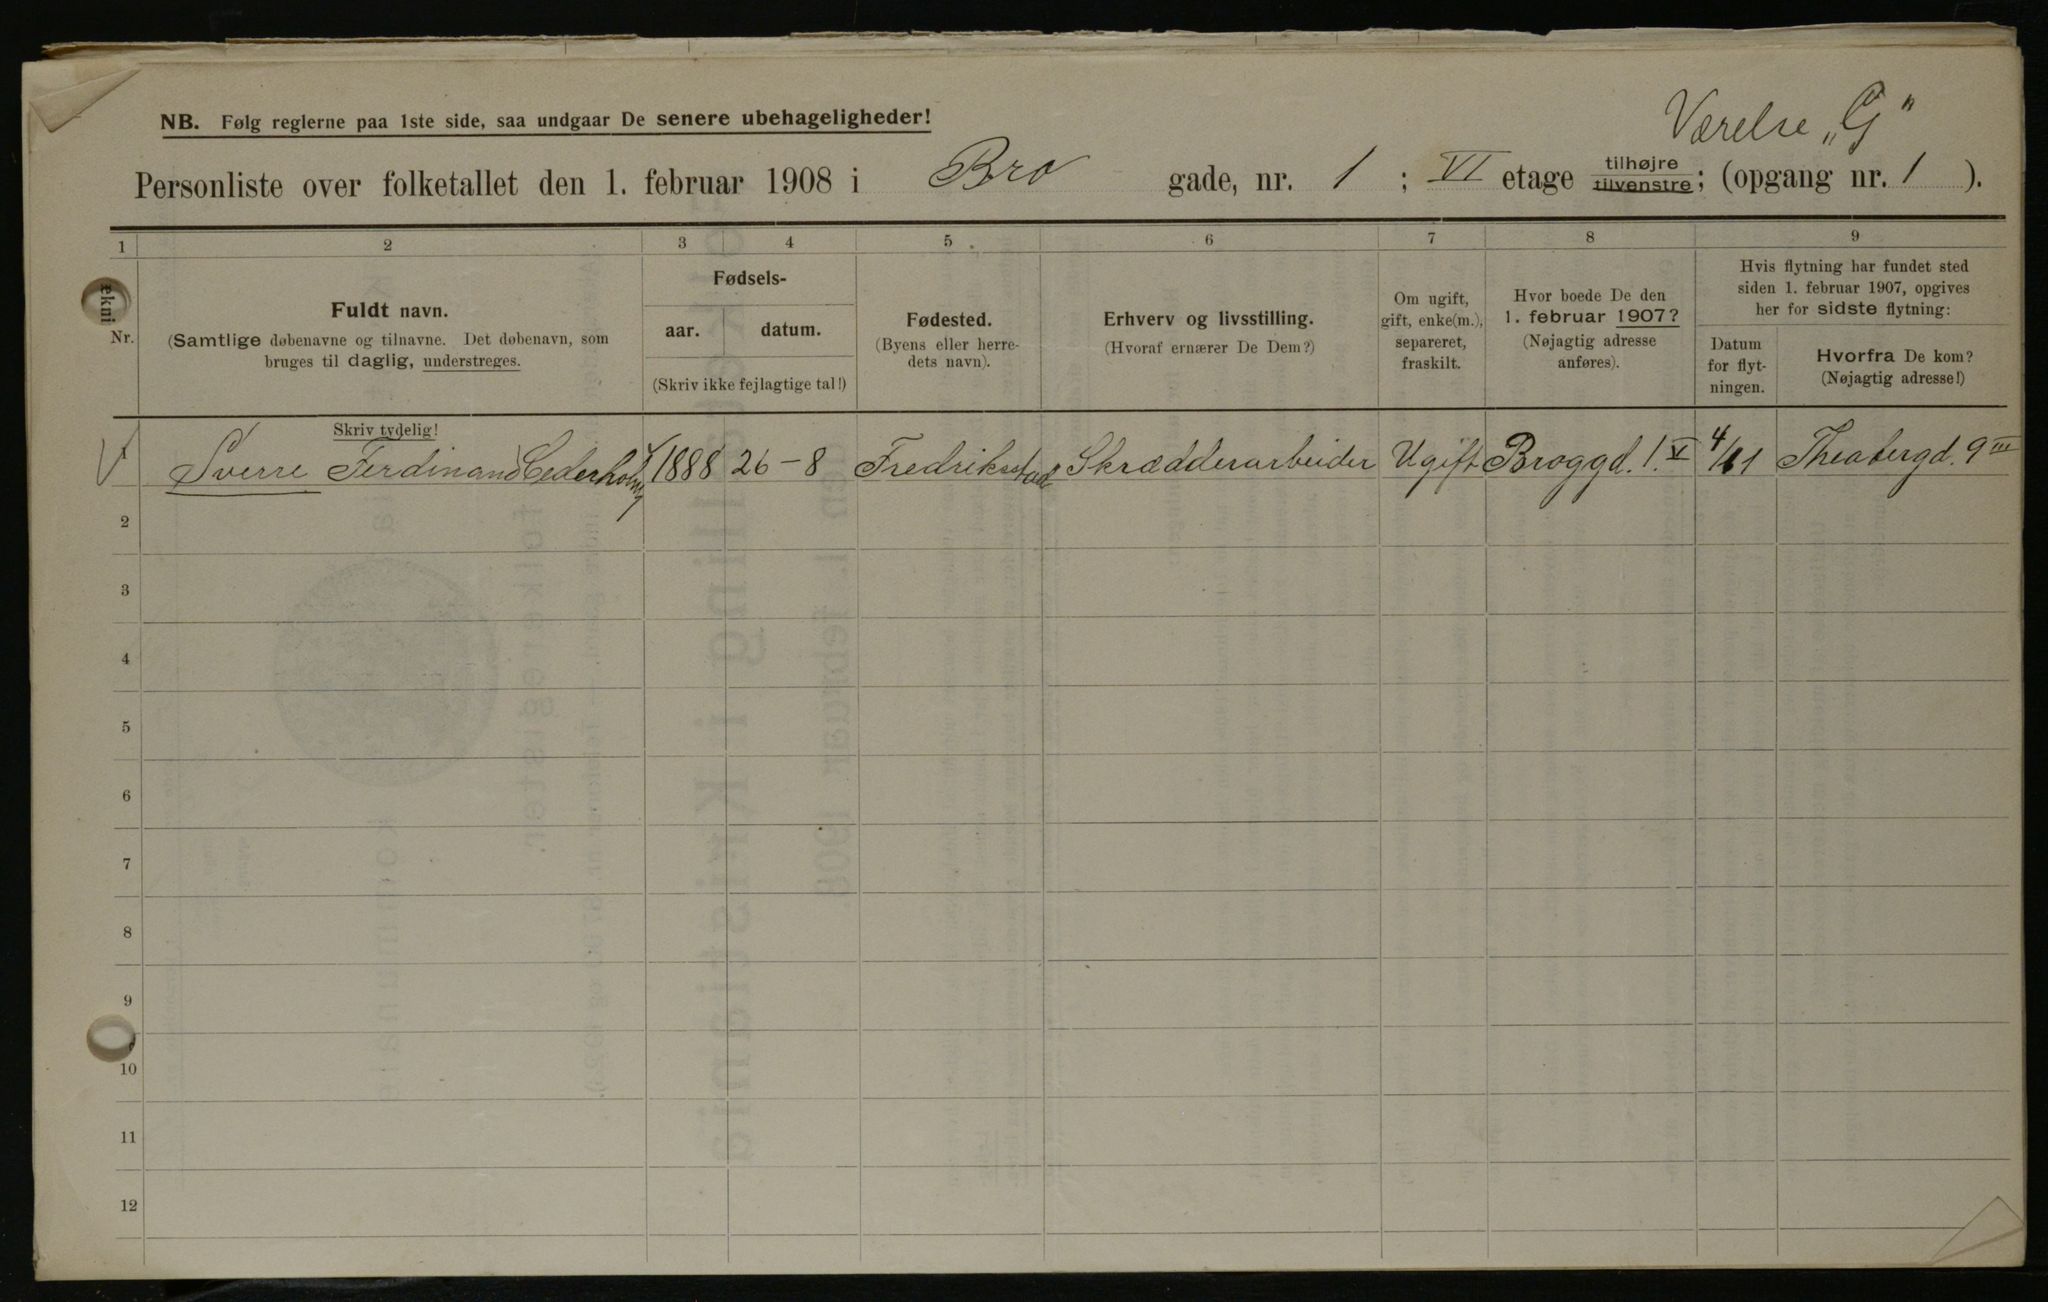 Værelse „G"
NB. Følg reglerne paa 1ste side, saa undgaar De senere ubehageligheder!
Personliste over folketallet den 1. februar 1908 i Bro gade, nr. 1 ; VI etage tilhøjre tilvenstre; (opgang nr. 1 ).
1 2 3 4 5 6 7 8 9
Nr.
Fuldt navn.
(Samtlige døbenavne og tilnavne. Det døbenavn, som
bruges til daglig, understreges.
Skriv tydelig!
Fødsels-
aar. datum.
(Skriv ikke fejlagtige tal!)
Fødested.
(Byens eller herre-
dets navn).
Erhverv og livsstilling.
(Hvoraf ernærer De Dem?)
Om ugift,
gift, enke(m.),
separeret,
fraskilt.
Hvor boede De den
1. februar 1907?
(Nøjagtig adresse
anføres).
Hvis flytning har fundet sted
siden 1. februar 1907, opgives
her for sidste flytning:
Datum
for flyt-
ningen.
Hvorfra De kom?
(Nøjagtig adresse!)
1 Sverre Ferdinand Cederholm 1888 26-8 Fredriksstad Skrædderarbeider Ugift Broggd. 1. V 4/11 Theatergd. 9 III
2
3
4
5
6
7
8
9
10
11
12